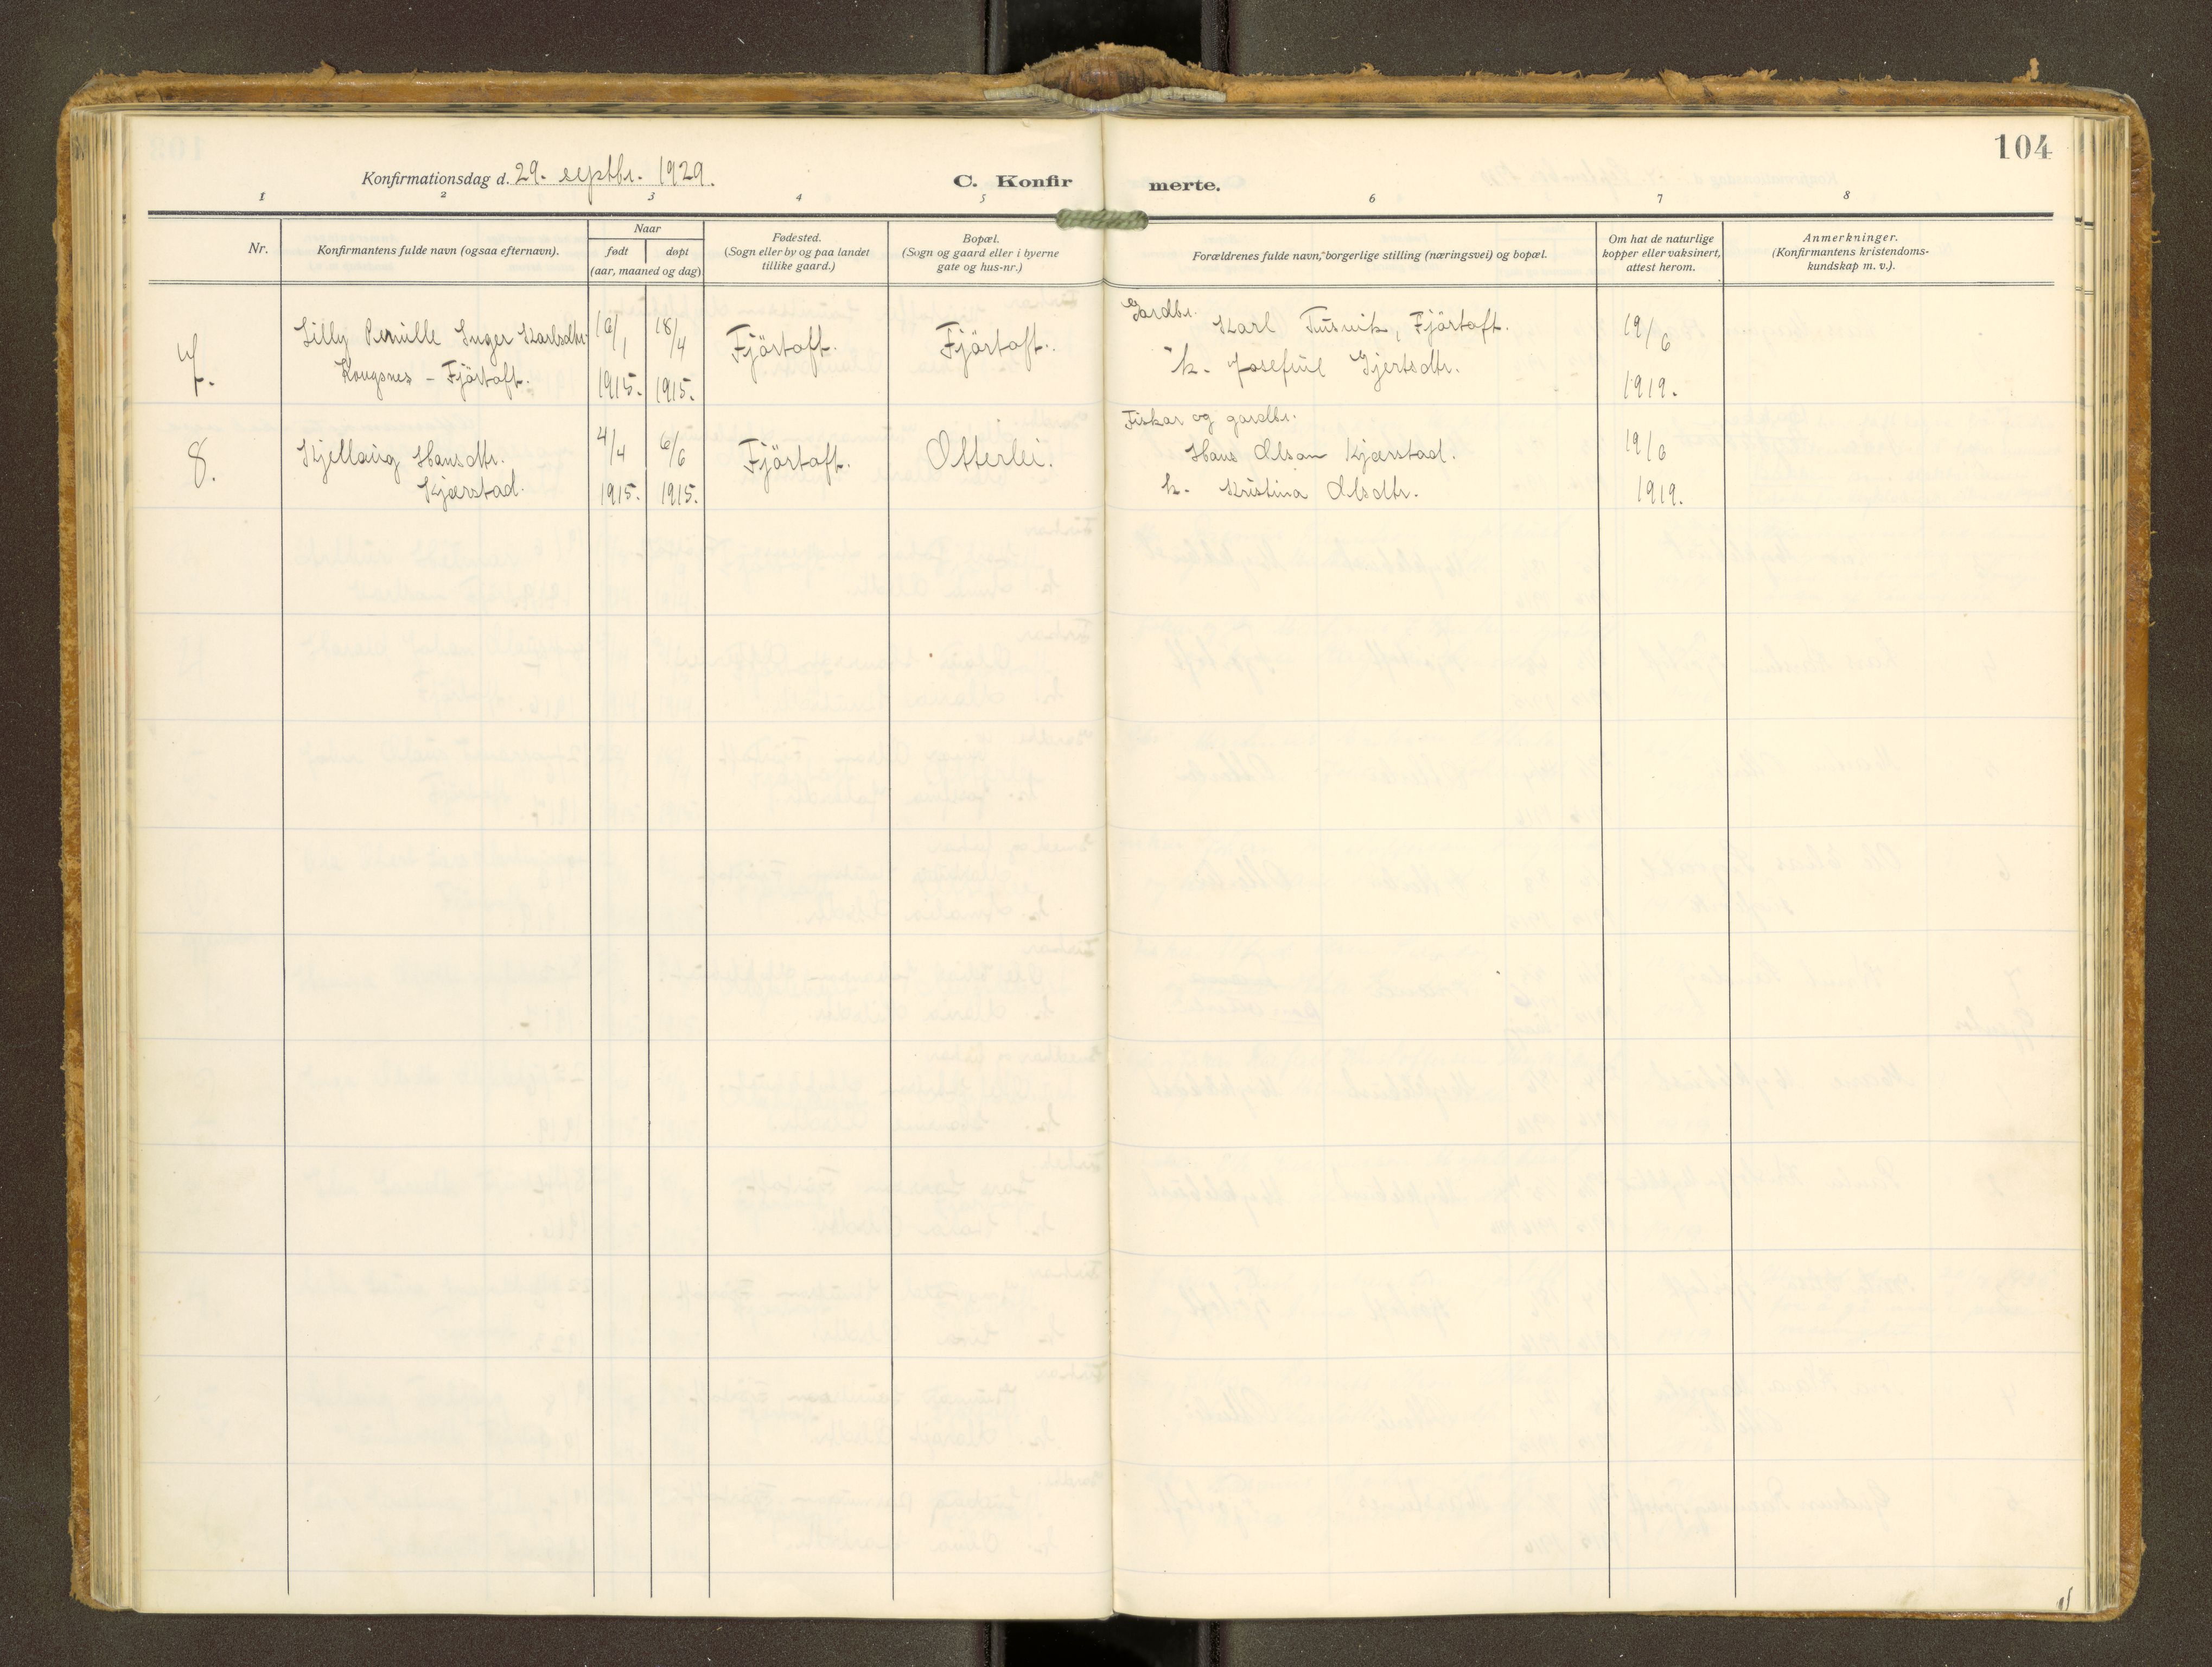 104
Konfirmationsdag d. 29. septbr. 1929.
C. Konfir merte.
1 2 3 4 5 6 7 8
Nr.
Konfirmantens fulde navn (ogsaa efternavn).
Naar
født døpt
(aar, maaned og dag)
Fødested.
(Sogn eller by og paa landet
tillike gaard.)
Bopæl.
(Sogn og gaard eller i byerne
gate og hus-nr.)
Forældrenes fulde navn, borgerlige stilling (næringsvei) og bopæl.
Om hat de naturlige
kopper eller vaksinert,
attest herom.
Anmerkninger.
(Konfirmantens kristendoms-
kundskap m. v.).
7.
Lilly Pernille Inger Karlsdtr.
Kongsnes - Fjörtoft.
16/1
1915.
18/4
1915.
Fjörtoft.
Fjörtoft.
Gardbr.
Karl Tusvik, Fjörtoft.
k. Josefine Gjertsdtr.
19/6
1919.
8.
Kjellaug Hansdtr.
Kjærstad.
4/4
1915.
6/6
1915.
Fjörtoft.
Otterlei.
Fiskar og gardbr.
Hans Olsan Kjærstad.
k. Kristina Olsdtr.
19/6
1919.